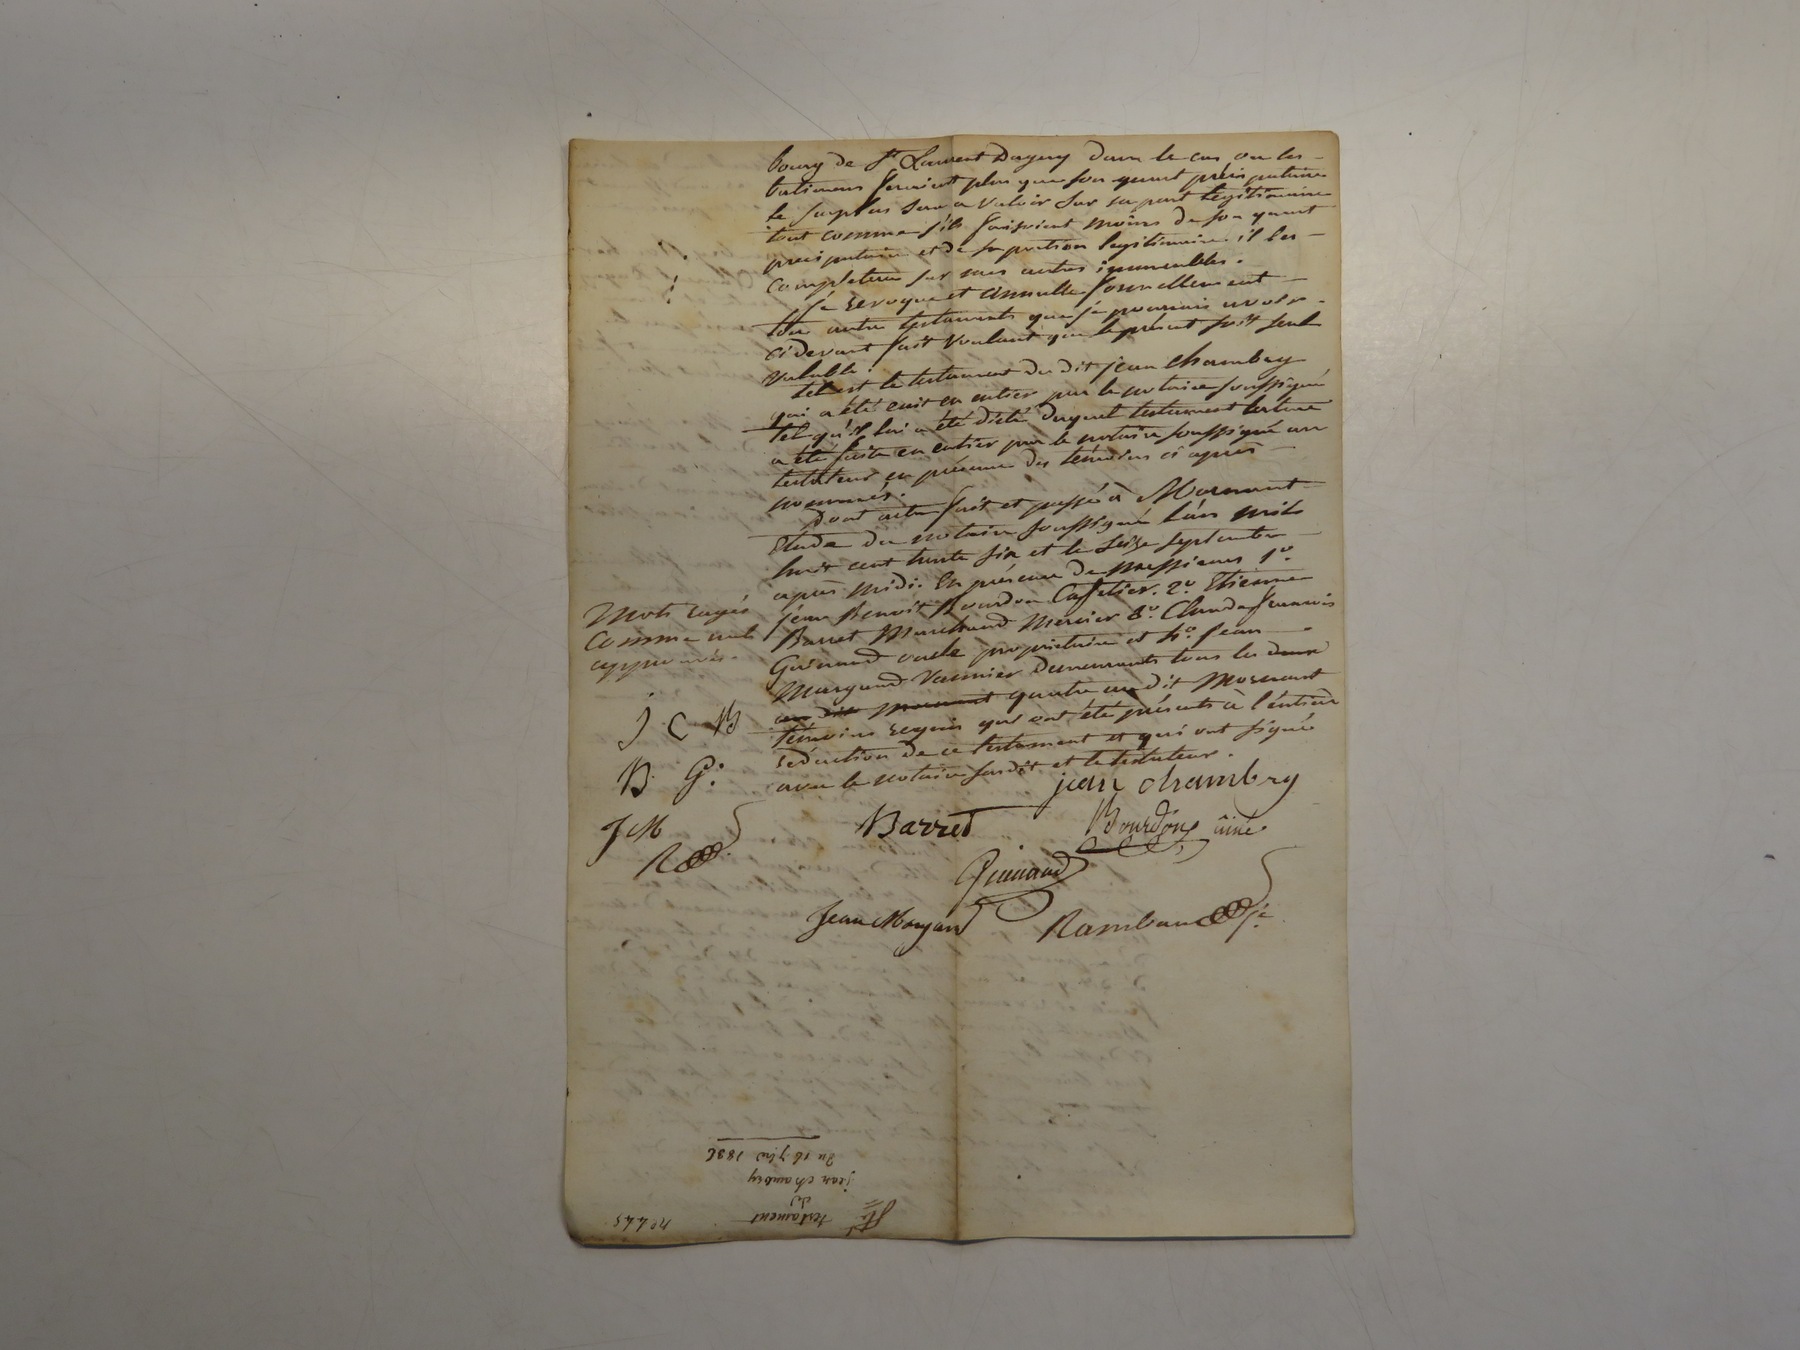 bourg de St Laurent Dagny dans le cas ou les
batimens feroient plus que son quart preciputaire
le surplus sera a valoir sur sa part legitimaire
tout comme s'ils faisoient moins de son quart
preciputaire et de sa portion legitimaire il les
completera sur mes autres immeubles.
je revoque et annulle formellement
tous autres testaments que je pourrois avoir
cidevant fait voulant que le présent soit seul
valable.
tel est le testament du dit jean chambry
qui a été écrit en entier par le notaire soussigné
tel qu'il lui a été dicté duquel testament lecture
a été faite en entier par le notaire soussigné au
testateur en présence des témoins ci après
nommés.
dont acte fait et passé à Mornant
étude du notaire soussigné l'an mil
huit cent trente six et le seize septembre
après midi. En présence de messieurs 1o.
jean Benoit Bourdon Cafetier. 2o. Etienne
Barret Marchand Mercier 3o. Claude françois
Guinand oncle propriétaire et 4o. Jean
Margand Vannier demeurants tous les deux
au dit Mornant quatre au dit Mornant
témoins requis qui ont été présents à l'entière
rédaction de ce testament et qui ont signé
avec le notaire susdit et le testateur.
Mots rayés
comme nuls
approuvés.
J. C B
B. G.
J M
R
jean chambry
Barret Bourdon ainé
Guinand
Jean Margand Rambaud
No 445
Ste testament
de
jean chambry
du 16 7bre 1836